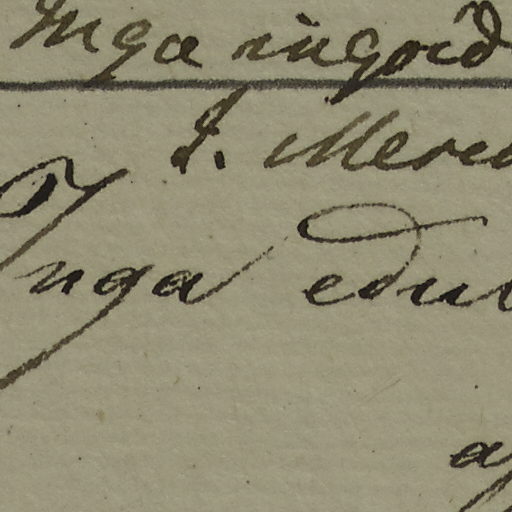 Inga ingoid
J. Merc
Inga edul
a